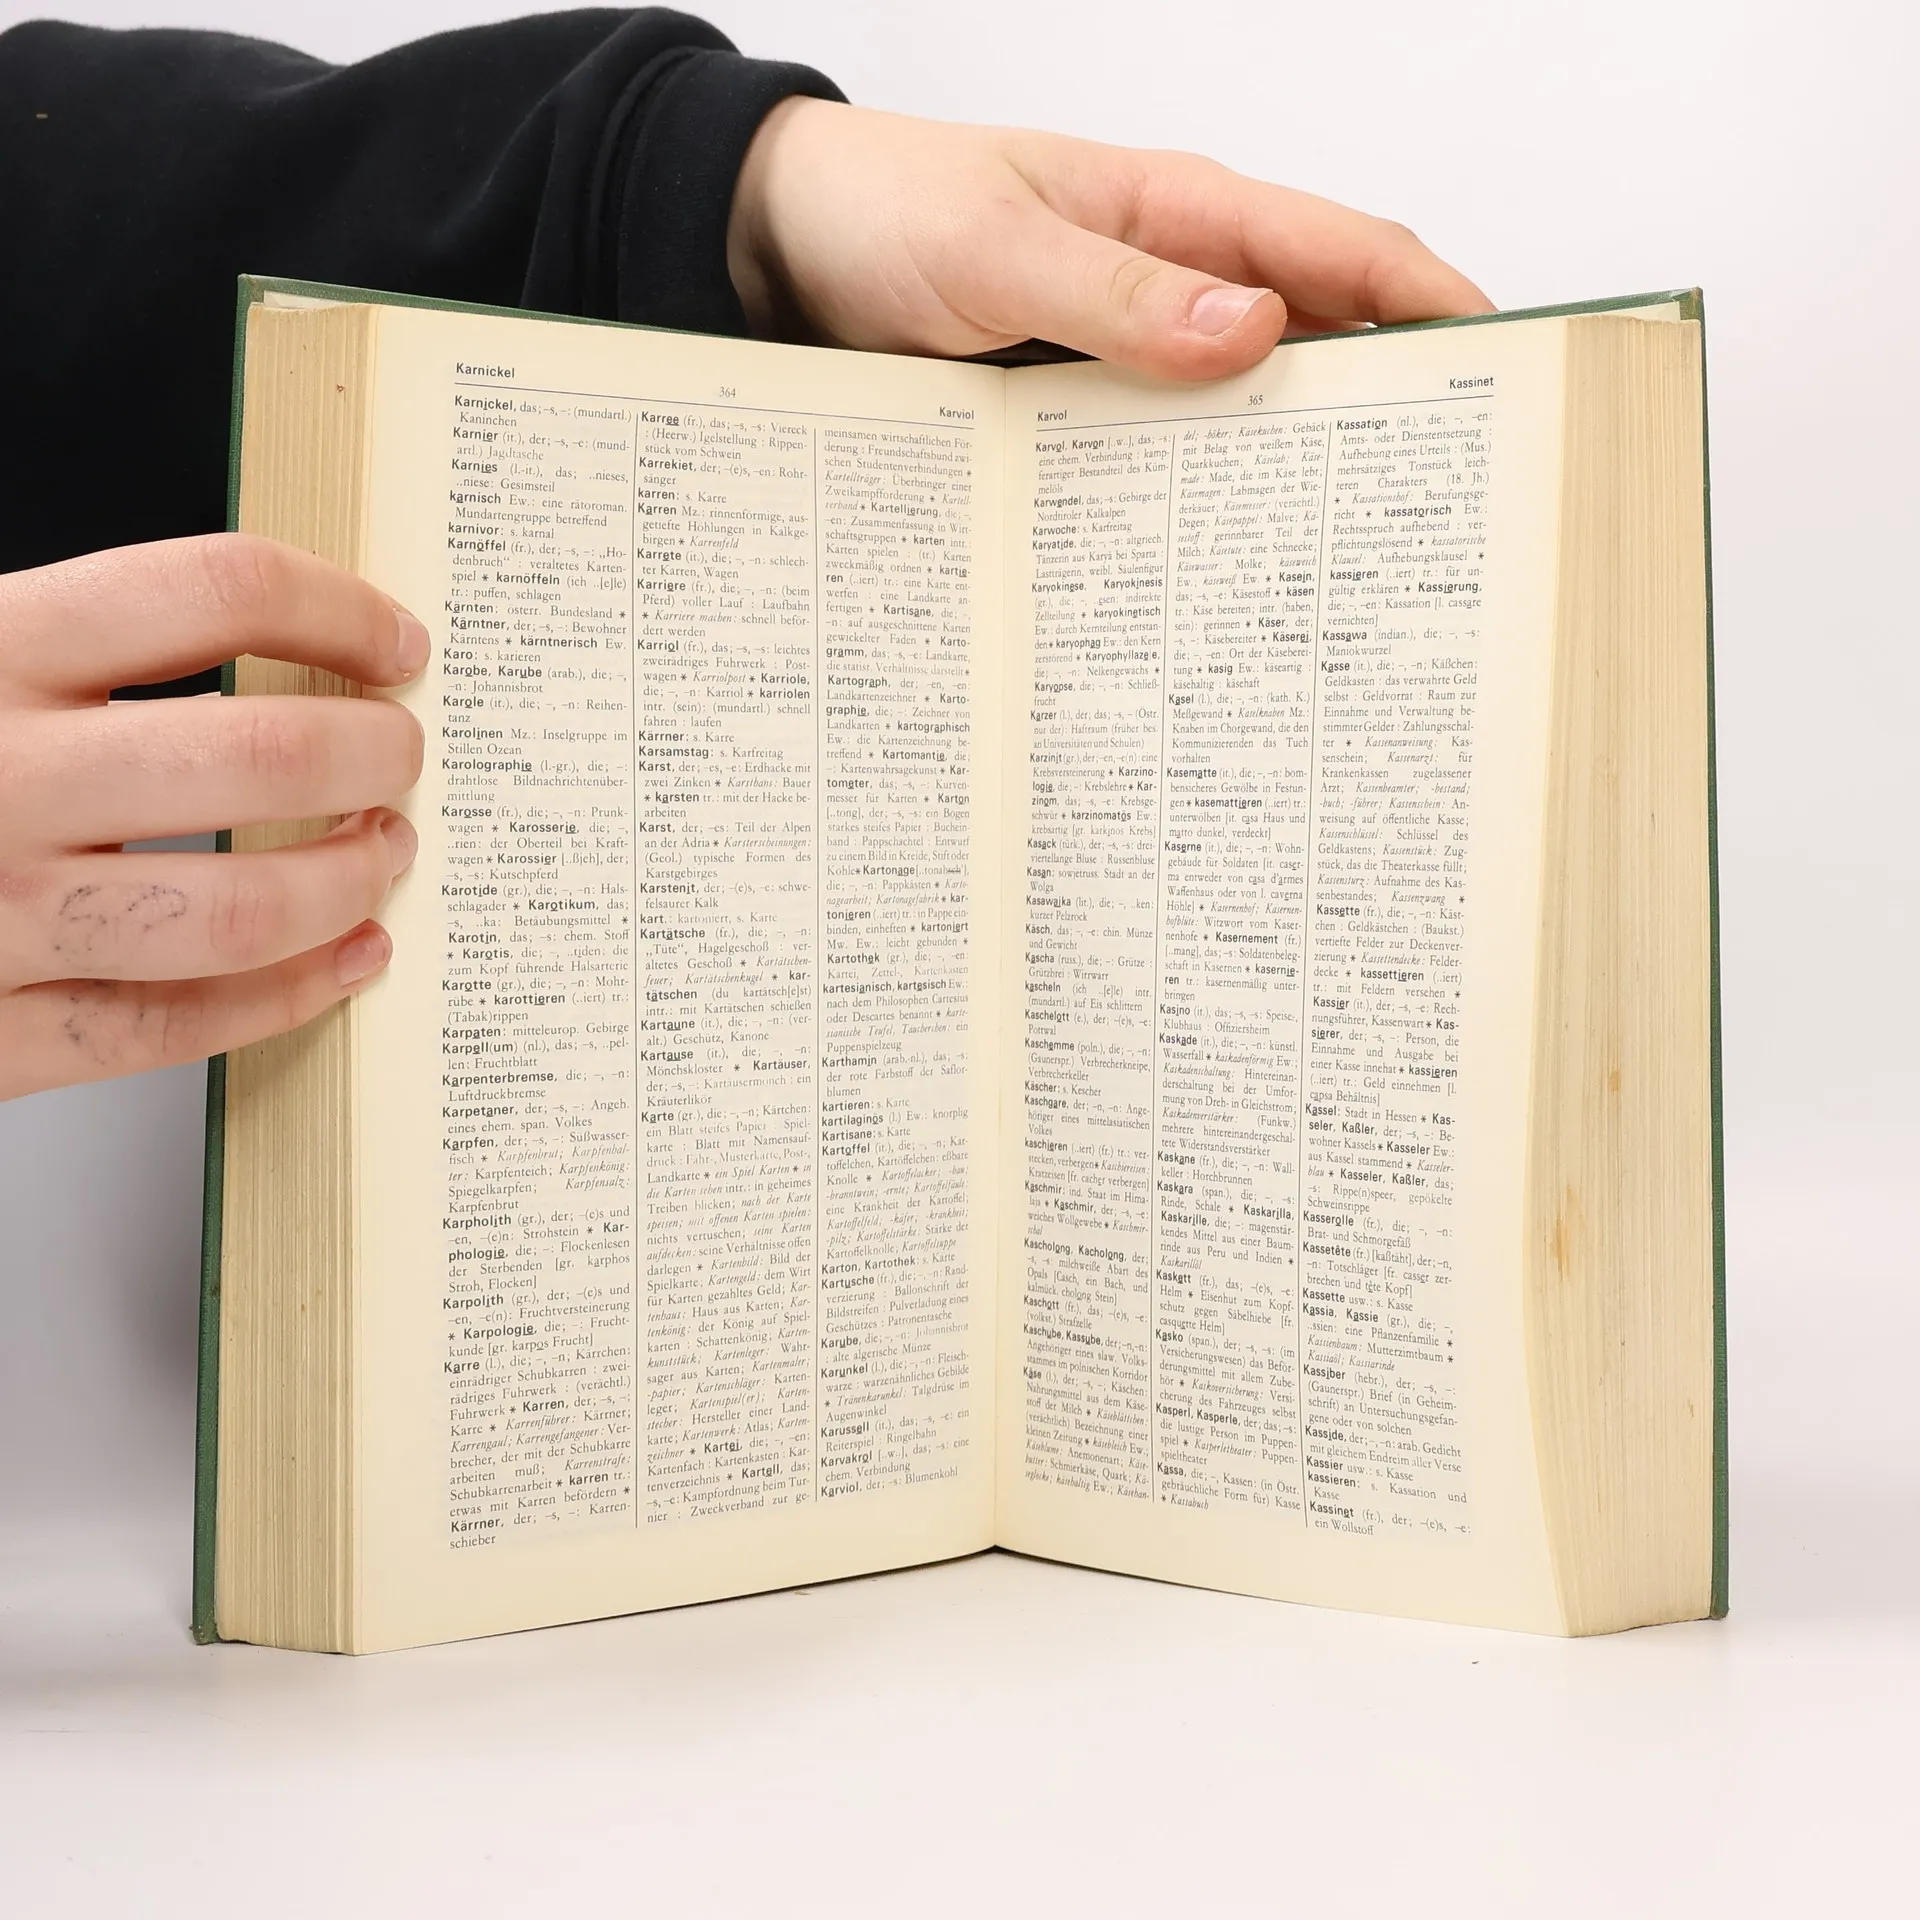 Karnickel
364
Karviol
Karnickel, das; –s, –: (mundartl.)
Kaninchen
Karnier (it.), der; –s, –e: (mund-
artl.) Jagdtasche
Karnies (l.-it.), das; ..nieses,
..niese: Gesimsteil
karnisch Ew.: eine rätoroman.
Mundartengruppe betreffend
karnivor: s. karnal
Karnöffel (fr.), der; –s, –: „Ho-
denbruch“ : veraltetes Karten-
spiel * karnöffeln (ich ..[e]le)
tr.: puffen, schlagen
Kärnten: österr. Bundesland *
Kärntner, der; –s, –: Bewohner
Kärntens * kärntnerisch Ew.
Karo: s. karieren
Karobe, Karube (arab.), die; –,
–n: Johannisbrot
Karole (it.), die; –, –n: Reihen-
tanz
Karolinen Mz.: Inselgruppe im
Stillen Ozean
Karolographie (l.-gr.), die; –:
drahtlose Bildnachrichtenüber-
mittlung
Karosse (fr.), die; –, –n: Prunk-
wagen * Karosserie, die; –,
..rien: der Oberteil bei Kraft-
wagen * Karossier [..ßjeh], der;
–s, –s: Kutschpferd
Karotide (gr.), die; –, –n: Hals-
schlagader * Karotikum, das;
–s, ..ka: Betäubungsmittel *
Karotin, das; –s: chem. Stoff
* Karotis, die; –, ..tiden: die
zum Kopf führende Halsarterie
Karotte (gr.), die; –, –n: Mohr-
rübe * karottieren (..iert) tr.:
(Tabak)rippen
Karpaten: mitteleurop. Gebirge
Karpell(um) (nl.), das; –s, ..pel-
len: Fruchtblatt
Karpenterbremse, die; –, –n:
Luftdruckbremse
Karpetaner, der; –s, –: Angeh.
eines ehem. span. Volkes
Karpfen, der; –s, –: Süßwasser-
fisch * Karpfenbrut; Karpfenhal-
ter: Karpfenteich; Karpfenkönig:
Spiegelkarpfen; Karpfensalz:
Karpfenbrut
Karpholith (gr.), der; –(e)s und
–en, –(e)n: Strohstein * Kar-
phologie, die; –: Flockenlesen
der Sterbenden [gr. karphos
Stroh, Flocken]
Karpolith (gr.), der; –(e)s und
–en, –e(n): Fruchtversteinerung
* Karpologie, die; –: Frucht-
kunde [gr. karpos Frucht]
Karre (l.), die; –, –n; Kärrchen:
einrädriger Schubkarren : zwei-
rädriges Fuhrwerk : (verächtl.)
Fuhrwerk * Karren, der; –s, –:
Karre * Karrenführer: Kärrner;
Karrengaul; Karrengefangener: Ver-
brecher, der mit der Schubkarre
arbeiten muß; Karrenstrafe:
Schubkarrenarbeit * karren tr.:
etwas mit Karren befördern *
Kärrner, der; –s, –: Karren-
schieber
Karree (fr.), das; –s, –s: Viereck
: (Heerw.) Igelstellung : Rippen-
stück vom Schwein
Karrekiet, der; –(e)s, –en: Rohr-
sänger
karren: s. Karre
Karren Mz.: rinnenförmige, aus-
getiefte Höhlungen in Kalkge-
birgen * Karrenfeld
Karrete (it.), die; –, –n: schlech-
ter Karren, Wagen
Karriere (fr.), die; –, –n: (beim
Pferd) voller Lauf : Laufbahn
* Karriere machen: schnell beför-
dert werden
Karriol (fr.), das; –s, –s: leichtes
zweirädriges Fuhrwerk : Post-
wagen * Karriolpost * Karriole,
die; –, –n: Karriol * karriolen
intr. (sein): (mundartl.) schnell
fahren : laufen
Kärrner: s. Karre
Karsamstag: s. Karfreitag
Karst, der; –es, –e: Erdhacke mit
zwei Zinken * Karsthans: Bauer
* karsten tr.: mit der Hacke be-
arbeiten
Karst, der; –es: Teil der Alpen
an der Adria * Karsterscheinungen:
(Geol.) typische Formen des
Karstgebirges
Karstenit, der; –(e)s, –e: schwe-
felsaurer Kalk
kart.: kartoniert, s. Karte
Kartätsche (fr.), die; –, –n:
„Tüte“, Hagelgeschoß : ver-
altetes Geschoß * Kartätschen-
feuer; Kartätschenkugel * kar-
tätschen (du kartätsch[e]st)
intr.: mit Kartätschen schießen
Kartaune (it.), die; –, –n: (ver-
alt.) Geschütz, Kanone
Kartause (it.), die; –, –n:
Mönchskloster * Kartäuser,
der; –s, –: Kartäusermönch : ein
Kräuterlikör
Karte (gr.), die; –, –n; Kärtchen:
ein Blatt steifes Papier : Spiel-
karte : Blatt mit Namensauf-
druck : Fahr-, Musterkarte, Post-,
Landkarte * ein Spiel Karten * in
die Karten sehen intr.: in geheimes
Treiben blicken; nach der Karte
speisen; mit offenen Karten spielen:
nichts vertuschen; seine Karten
aufdecken: seine Verhältnisse offen
darlegen * Kartenbild: Bild der
Spielkarte; Kartengeld: dem Wirt
für Karten gezahltes Geld; Kar-
tenhaus: Haus aus Karten; Kar-
tenkönig: der König auf Spiel-
karten : Schattenkönig; Karten-
kunststück; Kartenleger: Wahr-
sager aus Karten; Kartenmaler;
-papier; Kartenschläger: Karten-
leger; Kartenspiel(er); Karten-
stecher: Hersteller einer Land-
karte; Kartenwerk: Atlas; Karten-
zeichner * Kartei, die; –, –en:
Kartenfach : Kartenkasten : Kar-
tenverzeichnis * Kartell, das;
–s, –e: Kampfordnung beim Tur-
nier : Zweckverband zur ge-
meinsamen wirtschaftlichen För-
derung : Freundschaftsbund zwi-
schen Studentenverbindungen *
Kartellträger: Überbringer einer
Zweikampfforderung * Kartell-
verband * Kartellierung, die; –,
–en: Zusammenfassung in Wirt-
schaftsgruppen * karten intr.:
Karten spielen : (tr.) Karten
zweckmäßig ordnen * kartie-
ren (..iert) tr.: eine Karte ent-
werfen : eine Landkarte an-
fertigen * Kartisane, die; –,
–n: auf ausgeschnittene Karten
gewickelter Faden * Karto-
gramm, das, –s, –e: Landkarte,
die statist. Verhältnisse darstellt *
Kartograph, der; –en, –en:
Landkartenzeichner * Karto-
graphie, die; –: Zeichner von
Landkarten * kartographisch
Ew.: die Kartenzeichnung be-
treffend * Kartomantie, die;
–: Kartenwahrsagekunst * Kar-
tometer, das; –s, –: Kurven-
messer für Karten * Karton
[..tong], der; –s, –s: ein Bogen
starkes steifes Papier : Buchein-
band : Pappschachtel : Entwurf
zu einem Bild in Kreide, Stift oder
Kohle * Kartonage [..tonahsch],
die; –, –n: Pappkästen * Karto-
nagearbeit; Kartonagefabrik * kar-
tonieren (..iert) tr.: in Pappe ein-
binden, einheften * kartoniert
Mw. Ew.: leicht gebunden *
Kartothek (gr.), die; –, –en:
Kartei, Zettel-, Kartenkasten
kartesianisch, kartesisch Ew.:
nach dem Philosophen Cartesius
oder Descartes benannt * karte-
sianische Teufel, Taucherchen: ein
Puppenspielzeug
Karthamin (arab.-nl.), das, –s:
der rote Farbstoff der Saflor-
blumen
kartieren: s. Karte
kartilaginös (l.) Ew.: knorplig
Kartisane: s. Karte
Kartoffel (it.), die; –, –n; Kar-
töffelchen, Kartöffelchen: eßbare
Knolle * Kartoffelacker; -bau;
-branntwein; -ernte; Kartoffelfäule:
eine Krankheit der Kartoffel;
Kartoffelfeld; -käfer; -krankheit;
-pilz; Kartoffelstärke: Stärke der
Kartoffelknolle; Kartoffelsuppe
Karton, Kartothek: s. Karte
Kartusche (fr.), die; –, –n: Rand-
verzierung : Ballonschrift der
Bildstreifen : Pulverladung eines
Geschützes : Patronentasche
Karube, die; –, –n: Johannisbrot
: alte algerische Münze
Karunkel (l.), die; –, –n: Fleisch-
warze : warzenähnliches Gebilde
* Tränenkarunkel: Talgdrüse im
Augenwinkel
Karussell (it.), das; –s, –e: ein
Reiterspiel : Ringelbahn
Karvakrol [..w..], das; –s: eine
chem. Verbindung
Karviol, der; –s: Blumenkohl
Karvol
365
Kassinet
Karvol, Karvon [..w..], das; –s:
eine chem. Verbindung : kamp-
ferartiger Bestandteil des Küm-
melöls
Karwendel, das; –s: Gebirge der
Nordtiroler Kalkalpen
Karwoche: s. Karfreitag
Karyatide, die; –, –n: altgriech.
Tänzerin aus Karyä bei Sparta :
Lastträgerin, weibl. Säulenfigur
Karyokinese, Karyokinesis
(gr.), die; –, ..esen: indirekte
Zellteilung * karyokinetisch
Ew.: durch Kernteilung entstan-
den * karyophag Ew.: den Kern
zerstörend * Karyophyllazeie,
die; –, –n: Nelkengewächs *
Karyopse, die; –, –n: Schließ-
frucht
Karzer (l.), der; das; –s, – (Östr.
nur der): Haftraum (früher bes.
an Universitäten und Schulen)
Karzinjt (gr.), der; –en, –e(n): eine
Krebsversteinerung * Karzino-
logie, die; –: Krebslehre * Kar-
zinom, das; –s, –e: Krebsge-
schwür * karzinomatös Ew.:
krebsartig [gr. karkinos Krebs]
Kasack (türk.), der; –s, –s: drei-
viertellange Bluse : Russenbluse
Kasan: sowjetruss. Stadt an der
Wolga
Kasawaika (lit.), die; –, ..ken:
kurzer Pelzrock
Käsch, das; –, –e: chin. Münze
und Gewicht
Kascha (russ.), die; –: Grütze :
Grützbrei : Wirrwarr
kascheln (ich ..[e]le) intr.
(mundartl.) auf Eis schlittern
Kaschelott (e.), der; –(e)s, –e:
Pottwal
Kaschemme (poln.), die; –, –n:
(Gaunerspr.) Verbrecherkneipe,
Verbrecherkeller
Käscher: s. Kescher
Kaschgare, der; –n, –n: Ange-
höriger eines mittelasiatischen
Volkes
kaschieren (..iert) (fr.) tr.: ver-
stecken, verbergen * Kaschiereisen:
Kratzeisen [fr. cacher verbergen]
Kaschmir: ind. Staat im Hima-
laja * Kaschmir, der; –s, –e:
weiches Wollgewebe * Kaschmir-
schal
Kascholong, Kacholong, der;
–s, –s: milchweiße Abart des
Opals [Casch, ein Bach, und
kalmück. cholong Stein]
Kaschott (fr.), das; –(e)s, –e:
(volkst.) Strafzelle
Kaschube, Kassube, der; –n, –n:
Angehöriger eines slaw. Volks-
stammes im polnischen Korridor
Käse (l.), der; –s, –, Käschen:
Nahrungsmittel aus dem Käse-
stoff der Milch * Käseblättchen:
(verächtlich) Bezeichnung einer
kleinen Zeitung * käsebleich Ew.;
Käseblume: Anemonenart; Käse-
butter: Schmierkäse, Quark; Kä-
seglocke; käsehaltig Ew.; Käsehan-
del; -höker; Käsekuchen: Gebäck
mit Belag von weißem Käse,
Quarkkuchen; Käselab; Käse-
made: Made, die im Käse lebt;
Käsemagen: Labmagen der Wie-
derkäuer; Käsemesser: (verächtl.)
Degen; Käsepappel: Malve; Kä-
sestoff: gerinnbarer Teil der
Milch; Käsetute: eine Schnecke;
Käsewasser: Molke; käseweich
Ew.; käseweiß Ew. * Kasein,
das; –s, –e: Käsestoff * käsen
tr.: Käse bereiten; intr. (haben,
sein): gerinnen * Käser, der;
–s, –: Käsebereiter * Käserei,
die; –, –en: Ort der Käseberei-
tung * käsig Ew.: käseartig :
käsehaltig : käsehaft
Kasel (l.), die; –, –n: (kath. K.)
Meßgewand * Kaselknaben Mz.:
Knaben im Chorgewand, die den
Kommunizierenden das Tuch
vorhalten
Kasematte (it.), die; –, –n: bom-
bensicheres Gewölbe in Festun-
gen * kasemattieren (..iert) tr.:
unterwölben [it. casa Haus und
matto dunkel, verdeckt]
Kaserne (it.), die; –, –n: Wohn-
gebäude für Soldaten [it. caser-
ma entweder von casa d’armes
Waffenhaus oder von l. caverna
Höhle] * Kasernenhof; Kasernen-
hofblüte: Witzwort vom Kaser-
nenhofe * Kasernement (fr.)
[..mang], das; –s: Soldatenbeleg-
schaft in Kasernen * kasernie-
ren tr.: kasernenmäßig unter-
bringen
Kasino (it.), das; –s, –s: Speise-,
Klubhaus : Offiziersheim
Kaskade (it.), die; –, –n: künstl.
Wasserfall * kaskadenförmig Ew.;
Kaskadenschaltung: Hintereinan-
derschaltung bei der Umfor-
mung von Dreh- in Gleichstrom;
Kaskadenverstärker: (Funkw.)
mehrere hintereinandergeschal-
tete Widerstandsverstärker
Kaskane (fr.), die; –, –n: Wall-
keller : Horchbrunnen
Kaskara (span.), die; –, –s:
Rinde, Schale * Kaskarilla,
Kaskarille, die; –: magenstär-
kendes Mittel aus einer Baum-
rinde aus Peru und Indien *
Kaskarillöl
Kaskett (fr.), das; –(e)s, –e:
Helm * Eisenhut zum Kopf-
schutz gegen Säbelhiebe [fr.
casquette Helm]
Kasko (span.), der; –s, –s: (im
Versicherungswesen) das Beför-
derungsmittel mit allem Zube-
hör * Kaskoversicherung: Versi-
cherung des Fahrzeuges selbst
Kasperl, Kasperle, der; das; –s:
die lustige Person im Puppen-
spiel * Kasperletheater: Puppen-
spieltheater
Kassa, die; –, Kassen: (in Östr.
gebräuchliche Form für) Kasse
* Kassabuch
Kassation (nl.), die; –, –en:
Amts- oder Dienstentsetzung :
Aufhebung eines Urteils : (Mus.)
mehrsätziges Tonstück leich-
teren Charakters (18. Jh.)
* Kassationshof: Berufungsge-
richt * kassatorisch Ew.:
Rechtsspruch aufhebend : ver-
pflichtungslösend * kassatorische
Klausel: Aufhebungsklausel *
kassieren (..iert) tr.: für un-
gültig erklären * Kassierung,
die; –, –en: Kassation [l. cassare
vernichten]
Kassawa (indian.), die; –, –s:
Maniokwurzel
Kasse (it.), die; –, –n; Käßchen:
Geldkasten : das verwahrte Geld
selbst : Geldvorrat : Raum zur
Einnahme und Verwaltung be-
stimmter Gelder : Zahlungsschal-
ter * Kassenanweisung: Kas-
senschein; Kassenarzt: für
Krankenkassen zugelassener
Arzt; Kassenbeamter; -bestand;
-buch; -führer; Kassenschein: An-
weisung auf öffentliche Kasse;
Kassenschlüssel: Schlüssel des
Geldkastens; Kassenstück: Zug-
stück, das die Theaterkasse füllt;
Kassensturz: Aufnahme des Kas-
senbestandes; Kassenzwang *
Kassette (fr.), die; –, –n: Käst-
chen : Geldkästchen : (Baukst.)
vertiefte Felder zur Deckenver-
zierung * Kassettendecke: Felder-
decke * kassettieren (..iert)
tr.: mit Feldern versehen *
Kassier (it.), der; –s, –e: Rech-
nungsführer, Kassenwart * Kas-
sierer, der; –s, –: Person, die
Einnahme und Ausgabe bei
einer Kasse innehat * kassieren
(..iert) tr.: Geld einnehmen [l.
capsa Behältnis]
Kassel: Stadt in Hessen * Kas-
seler, Kaßler, der; –s, –: Be-
wohner Kassels * Kasseler Ew.:
aus Kassel stammend * Kasseler-
blau * Kasseler, Kaßler, das;
–s: Rippe(n)speer, gepökelte
Schweinsrippe
Kasserolle (fr.), die; –, –n:
Brat- und Schmorgefäß
Kassetête (fr.) [kaßtäht], der; –n,
–n: Totschläger [fr. casser zer-
brechen und tête Kopf]
Kassette usw.: s. Kasse
Kassia, Kassie (gr.), die; –,
..ssien: eine Pflanzenfamilie *
Kassienbaum: Mutterzimtbaum *
Kassiaöl; Kassiarinde
Kassiber (hebr.), der; –s, –:
(Gaunerspr.) Brief (in Geheim-
schrift) an Untersuchungsgefan-
gene oder von solchen
Kasside, der; –, –n: arab. Gedicht
mit gleichem Endreim aller Verse
Kassier usw.: s. Kasse
kassieren: s. Kassation und
Kasse
Kassinet (fr.), der; –(e)s, –e:
ein Wollstoff